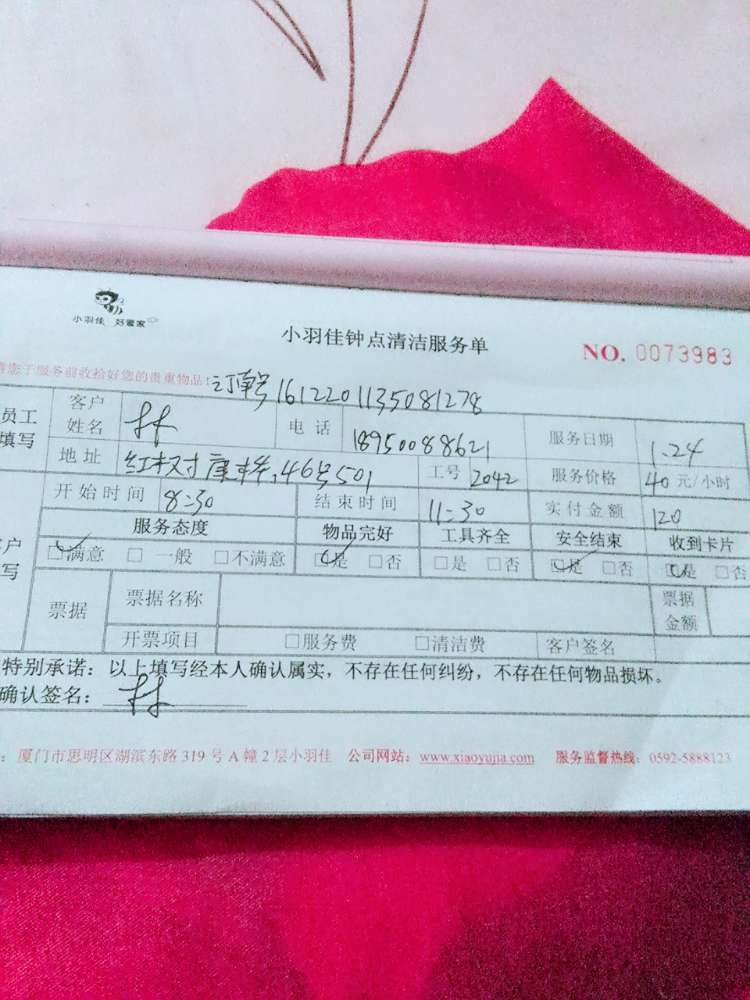 小羽佳 好管家
小羽佳钟点清洁服务单
NO. 0073983
请您于服务前收拾好您的贵重物品!订单号1612201135081278
员工填写 客户姓名 林 电话 18950088621 服务日期 1.24
地址 46号501 工号 2042 服务价格 40 元/小时
开始时间 8:30 结束时间 11:30 实付金额 120
服务态度 物品完好 工具齐全 安全结束 收到卡片
户写 ☑满意 □一般 □不满意 ☑是 □否 □是 □否 ☑是 □否 ☑是 □否
票据 票据名称 票据金额
开票项目 □服务费 □清洁费 客户签名
特别承诺：以上填写经本人确认属实，不存在任何纠纷，不存在任何物品损坏。
确认签名：林
：厦门市思明区湖滨东路 319 号 A 幢 2 层小羽佳 公司网站：www.xiaoyujia.com 服务监督热线：0592-5888123